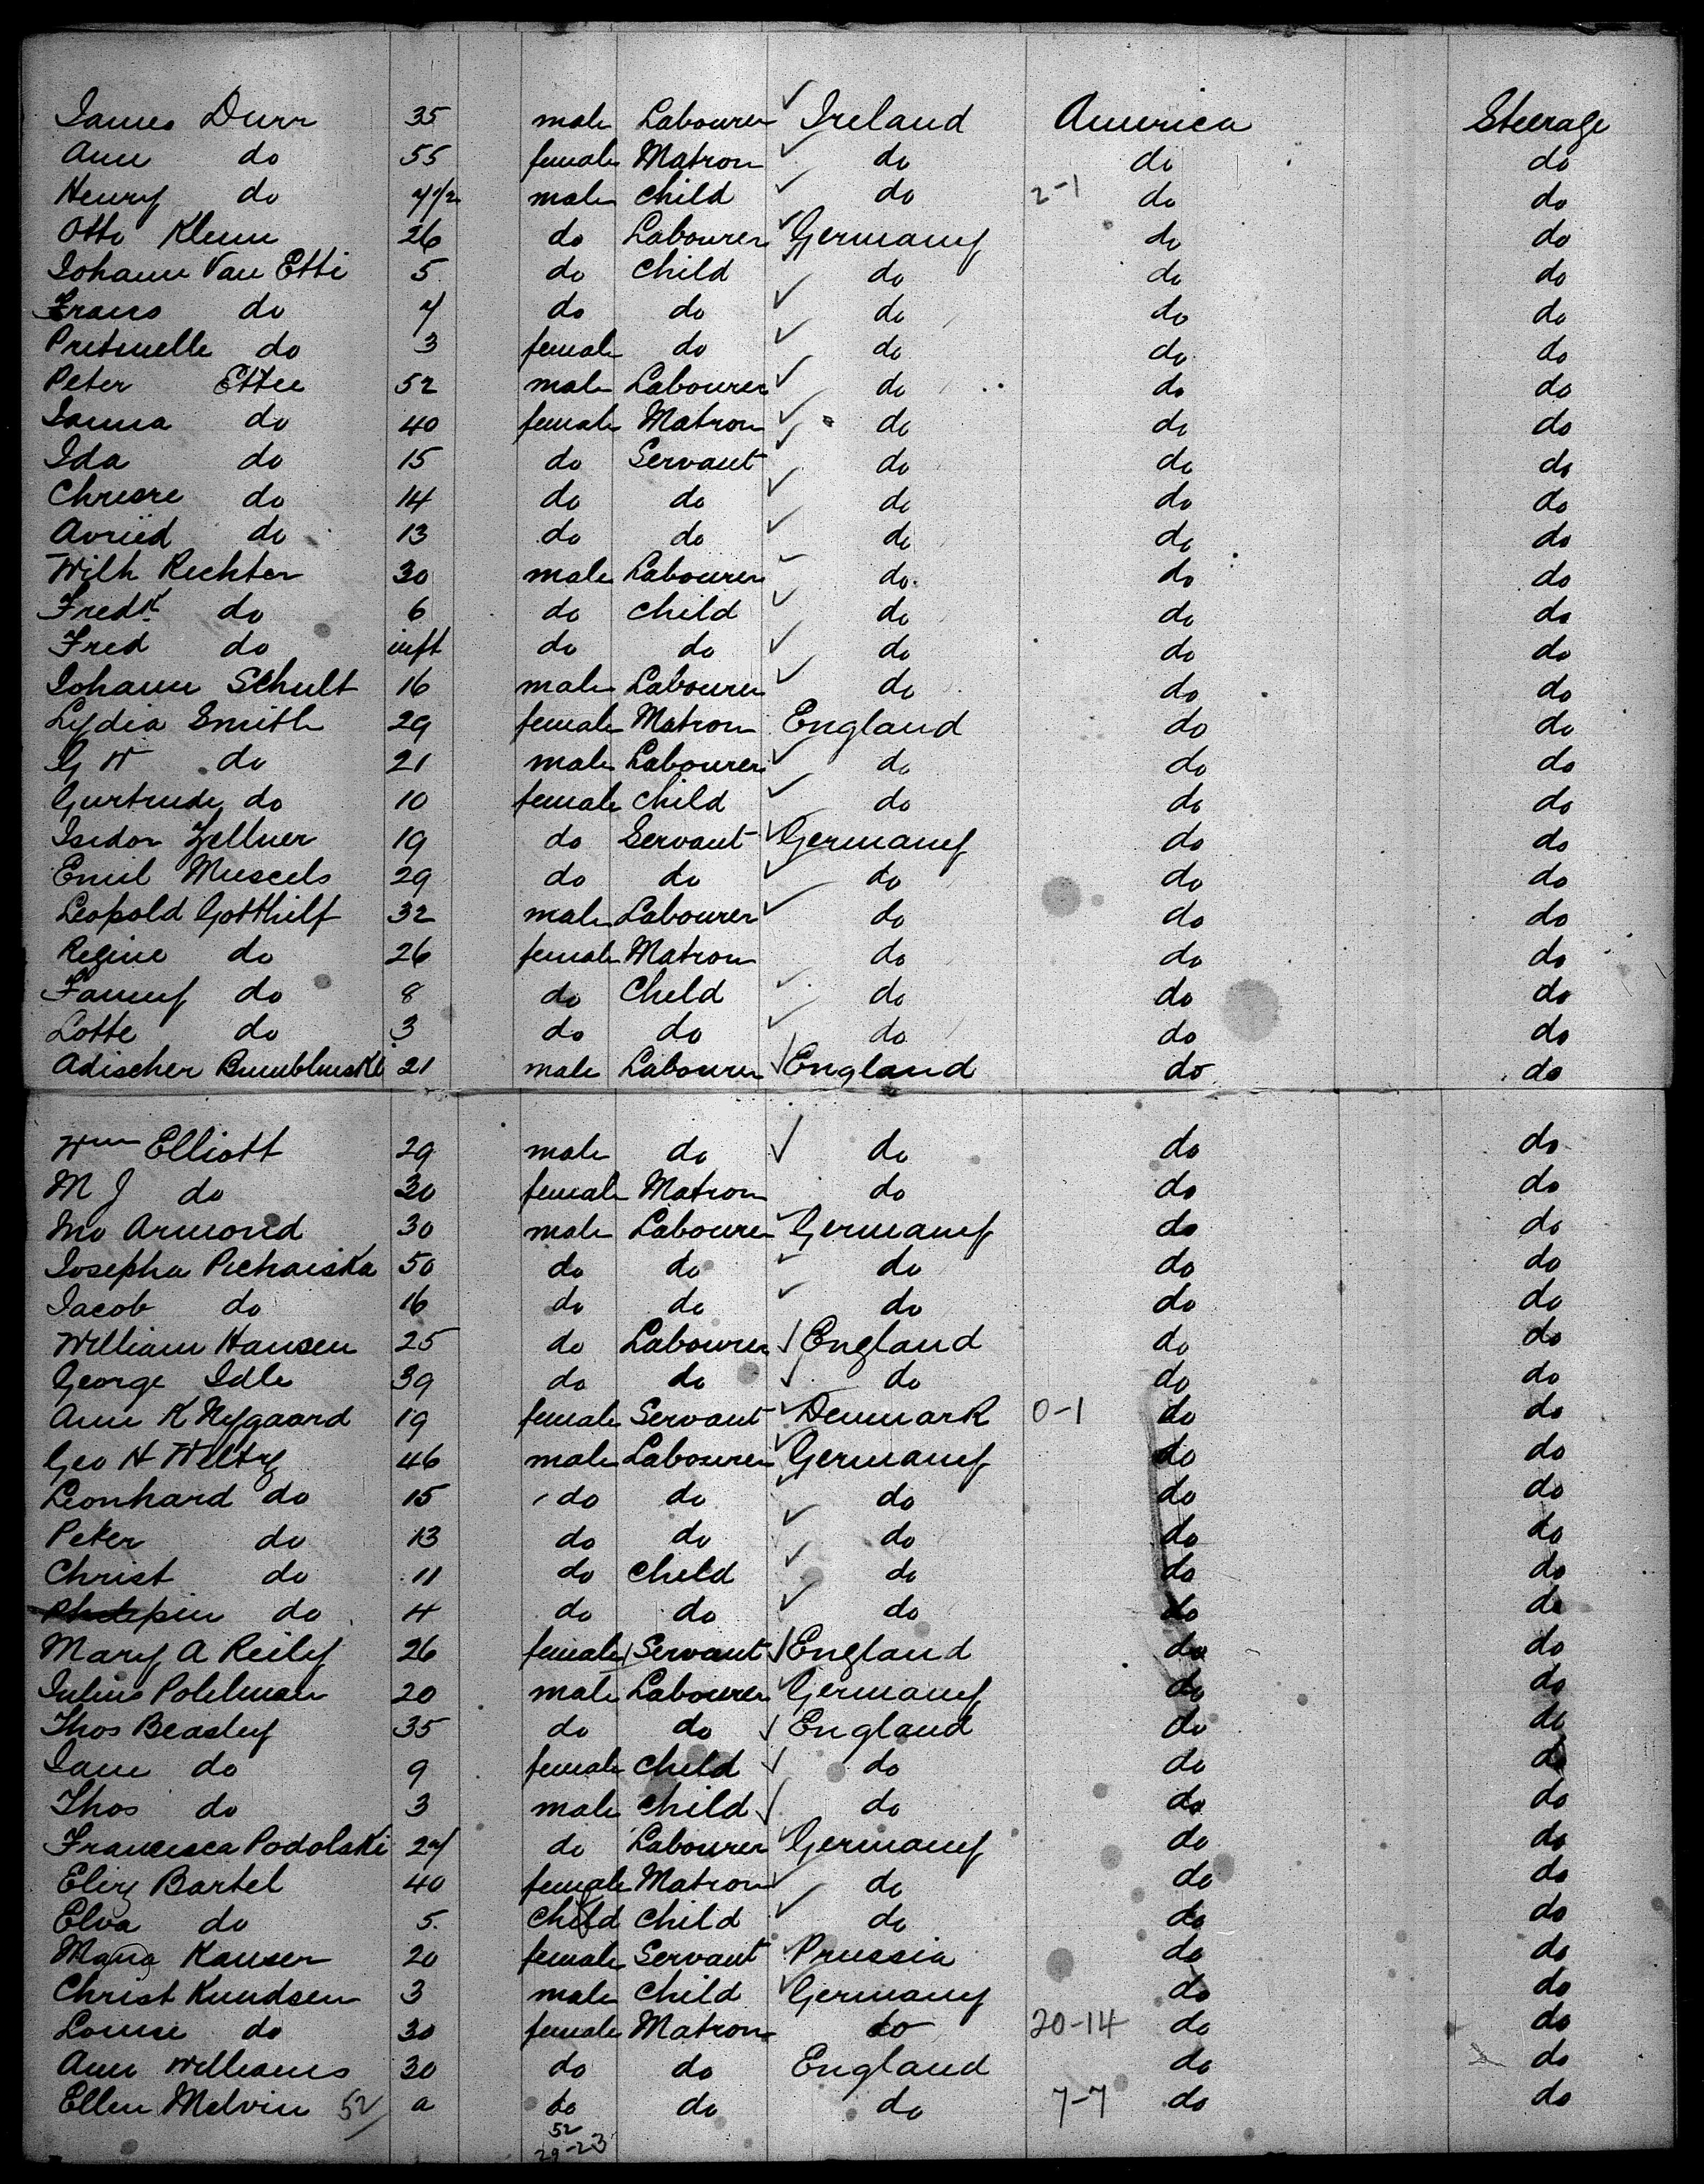 James Durr 35 male Labourer Ireland America Steerage
Ann do 55 female Matron do do do
Henry do 4 1/2 male child do 2-1 do do
Otto Klemm 26 do Labourer Germany do do
Johann Van Etti 5 do child do do do
Frans do 4 do do do do do
do 3 female do do do do
Peter Ettee 52 male Labourer do do do
Janna do 40 female Matron do do do
Ida do 15 do Servant do do do
do 14 do do do do do
do 13 do do do do do
Wilh Rechter 30 male Labourer do do do
Fredk do 6 do child do do do
Fred do inft do do do do do
Johann Schult 16 male Labourer do do do
Lydia Smith 29 female Matron England do do
G W do 21 male Labourer do do do
Gertrude do 10 female child do do do
Isidor Zellner 19 do Servant Germany do do
Emil Muscels 29 do do do do do
Leopold Gotthilf 32 male Labourer do do do
Regine do 26 female Matron do do do
Fanny do 8 do Child do do do
Lotte do 3 do do do do do
Adischer 21 male Labourer England do do
Wm Elliott 29 male do do do do
M J do 30 female Matron do do do
Armond 30 male Labourer Germany do do
Josepha Pichaiska 50 do do do do do
Jacob do 16 do do do do do
William Hansen 25 do Labourer England do do
George Idle 39 do do do do do
Ann K Nygaard 19 female Servant Denmark 0-1 do do
Geo H Weltz 46 male Labourer Germany do do
Leonhard do 15 do do do do do
Peter do 13 do do do do do
Christ do 11 do child do do do
do 4 do do do do do
Mary A Reily 26 female Servant England do do
Julius Pohlman 20 male Labourer Germany do do
Thos Beasley 35 do do England do do
Jane do 9 female child do do do
Thos do 3 male child do do do
Francisca Podolski 24 do Labourer Germany do do
Eliz Bartel 40 female Matron do do do
Elva do 5 child child do do do
Maria Kauser 20 female Servant Prussia do do
Christ Knudsen 3 male child Germany do do
Louise do 30 female Matron do 20-14 do do
Ann Williams 30 do do England do do
Ellen Melvin 52 a do do do 7-7 do do
52
29-23